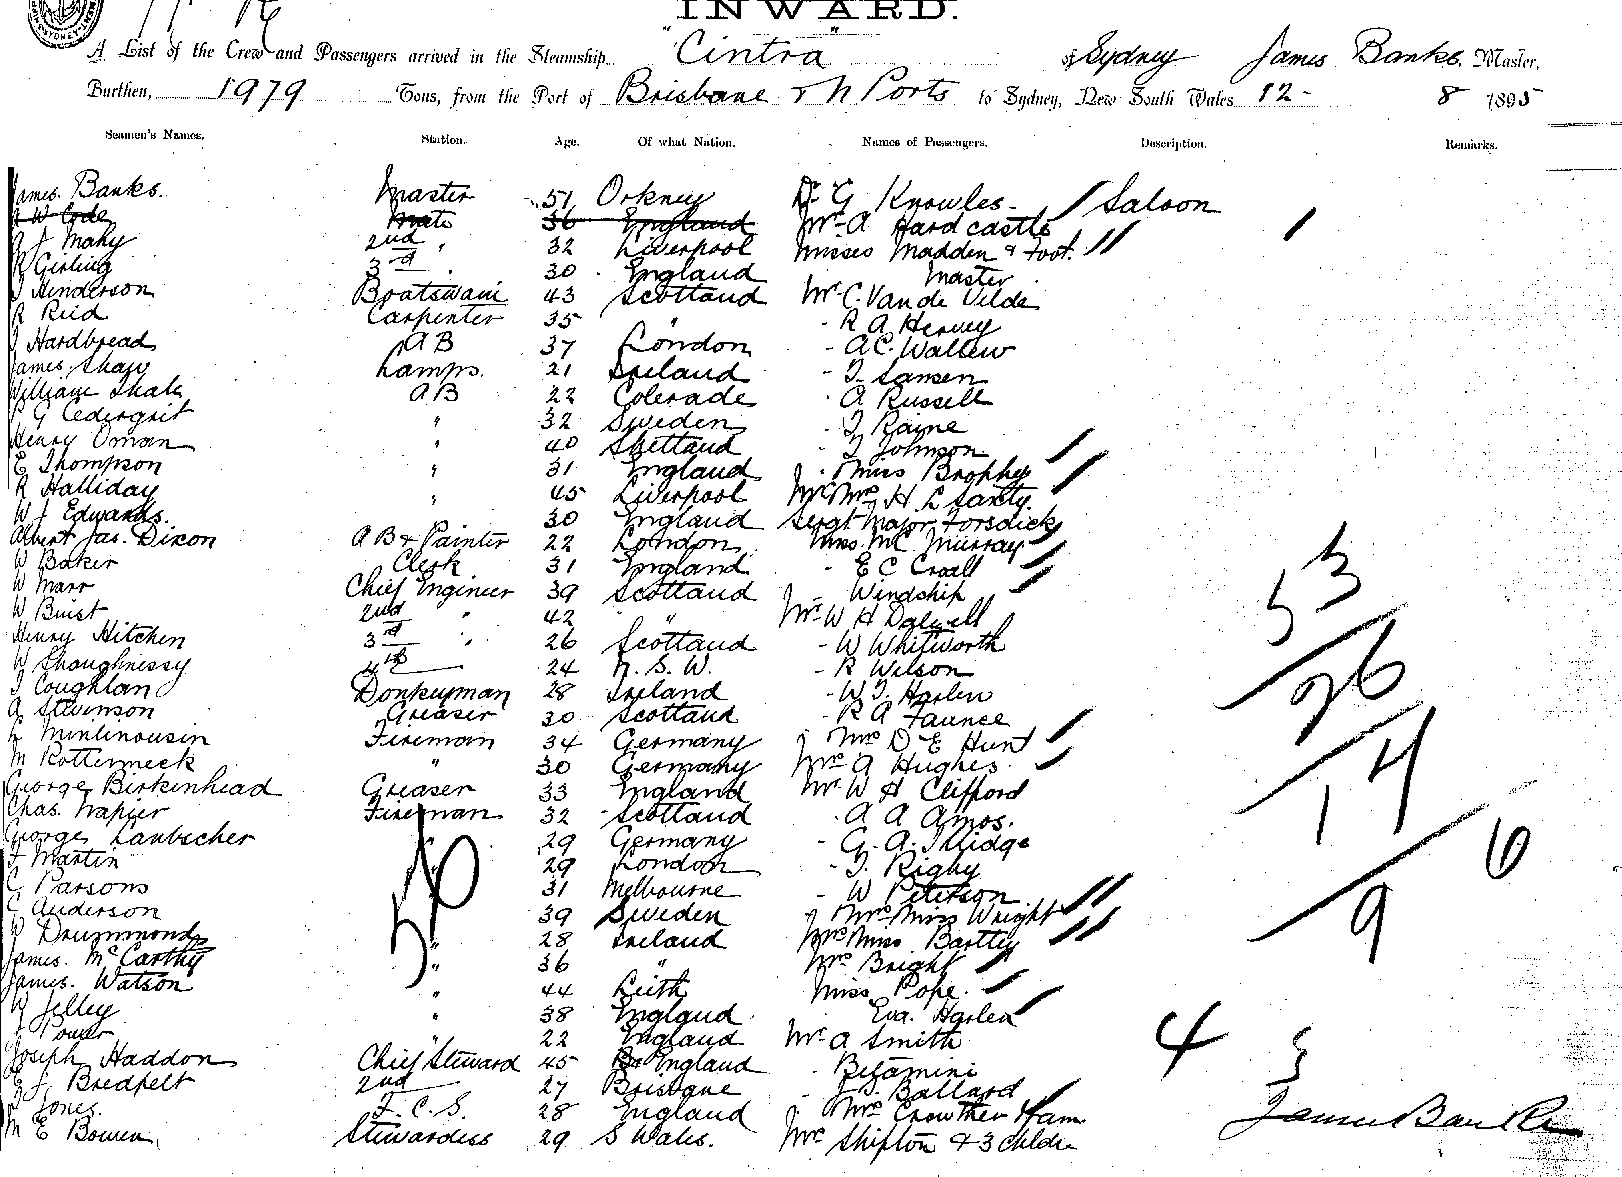 INWARD.
A List of the Crew and Passengers arrived in the Steamship "Cintra" of Sydney James Banks, Master,
Burthen, 1979 Tons, from the Port of Brisbane & N Ports to Sydney, New South Wales 12 - 8 1895
Seamen's Names. Station. Age. Of what Nation. Names of Passengers. Description. Remarks.
James Banks. Master 51 Orkney Dr G Knowles - Saloon
W Mate 36 England Mr A Hardcastle
Mahy 2nd " 32 Liverpool Misses Madden & Foot.
R Girling 3rd 30 England Master
J Henderson Boatswain 43 Scotland Mr C. Van de Velde
R Reid Carpenter 35 " - R A Hervey
J Hardbread AB 37 London - A C.
James Sharp Lamps. 21 Ireland - J.
William AB 22 - A Russell
G Cedergrit " 32 Sweden - J Raine
Henry Oman " 40 Shetland - Johnson
E Thompson " 31 England Miss Brophy
R Halliday " 45 Liverpool Mr Mrs H L
W J Edwards. 30 England Sergt Major Forsdick
Albert Jas. Dixon AB & Painter 22 London Miss Mc Murray
W Baker Clerk 31 England - E C Croall
W Marr Chief Engineer 39 Scotland - Windship
W Buist 2nd " 42 " Mr W H
Henry Hitchen 3rd " 26 Scotland - W Whitworth
W Shaughnessy 4th 24 N. S. W. - R Wilson
J Coughlan Donkeyman 28 Ireland - W. J. Harlen
A Stevenson Greaser 30 Scotland - R A Faunce
Fireman 34 Germany Mrs D E Hunt
M Rottermeck " 30 Germany Mrs A Hughes
George Birkenhead Greaser 33 England Mr W H Clifford
Chas. Napier Fireman 32 Scotland - A A Amos.
George Laubscher 29 Germany - G. A. Illidge
J Martin 29 London - J. Rigby
C Parsons 31 Melbourne - W Peterson
C Anderson 39 Sweden Mrs Miss Wright
W Drummond " 28 Ireland Mrs Miss Bartley
James. McCarthy " 36 " Mrs Bright
James. Watson " 44 Leith Miss Pope.
W Jelley " 38 England Eva Harlen
J Power " 22 England Mr A Smith
Joseph Haddon Chief Steward 45 England -
Bredfelt 2nd 27 Brisbane - J. S. Ballard
Jones. F. C. S. 28 England Mrs Crowther & fam
M E Bowen Stewardess 29 S Wales. Mrs Shipton & 3 Childn
36
53
26
14
9
6
4
James Banks